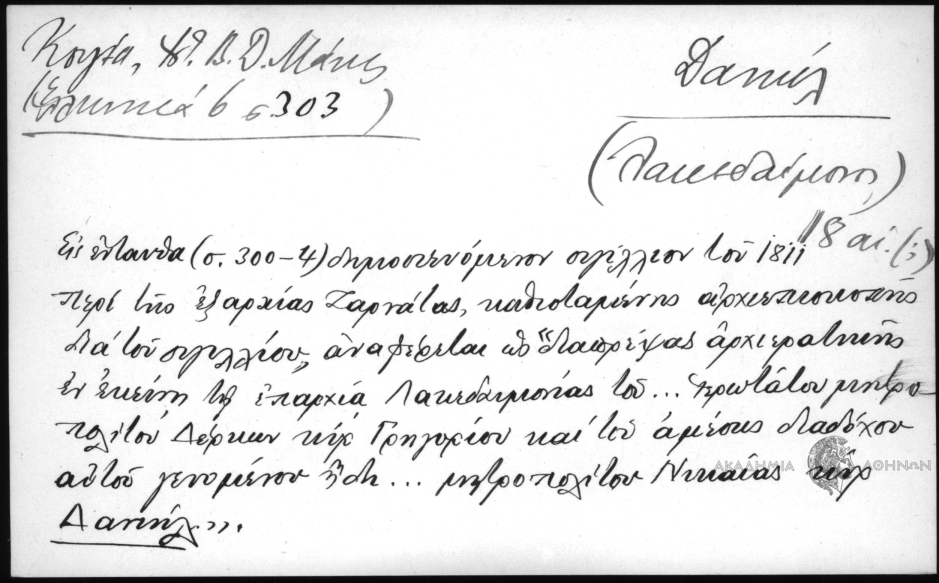 Κουγέα, Πρ. Β. Δ. Μάνης
(Ἑλληνικά 6 σ. 303)
Δανιήλ
(Λακεδαίμονος)
18 αἰ. (;)
Εἰς ἐνταῦθα (σ. 300-4) δημοσιευόμενον σιγίλλιον τοῦ 1811
περί τῆς ἐξαρχίας Ζαρνάτας, καθισταμένης ἀρχιεπισκοπῆς
διά τοῦ σιγιλλίου, ἀναφέρεται ὡς "διαπρέψας ἀρχιερατικῶς
ἐν ἐκείνῃ τῇ ἐπαρχίᾳ Λακεδαιμονίας τοῦ... ἱερωτάτου μητρο-
πολίτου Δέρκων κύρ Γρηγορίου καί τοῦ ἀμέσως διαδόχου
αὐτοῦ γενομένου ἤδη ... μητροπολίτου Νικαίας κύρ
Δανιήλ".
ΑΚΑΔΗΜΙΑ ΑΘΗΝΩΝ